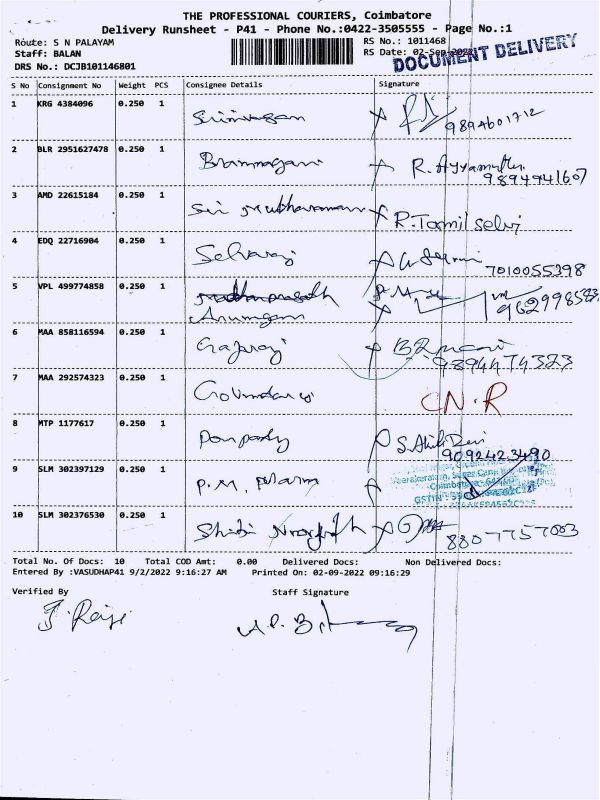 THE PROFESSIONAL COURIERS, Coimbatore
Delivery Runsheet - P41 - Phone No.:0422-3505555 - Page No.:1
Route: S N PALAYAM
RS No.: 1011468
Staff: BALAN
RS Date: 02-Sep-2022
DOCUMENT DELIVERY
DRS No.: DCJB101146801
S No Consignment No Weight PCS Consignee Details Signature
1 KRG 4384096 0.250 1 9894601712
2 BLR 2951627478 0.250 1 R. Ayyamuthu
9894941607
3 AMD 22615184 0.250 1 Sri Muthuraman R. Tamil Selvi
4 EDQ 22716904 0.250 1 Selvaraj
7010055398
5 VPL 499774858 0.250 1
Arumugam
6 MAA 858116594 0.250 1 Gajaraj
9894474323
7 MAA 292574323 0.250 1 Govindaraj CN.R
8 MTP 1177617 0.250 1
9092423490
9 SLM 302397129 0.250 1 P.M.
GSTIN
10 SLM 302376530 0.250 1 8807757003
Total No. Of Docs: 10 Total COD Amt: 0.00 Delivered Docs: Non Delivered Docs:
Entered By :VASUDHAP41 9/2/2022 9:16:27 AM Printed On: 02-09-2022 09:16:29
Verified By Staff Signature